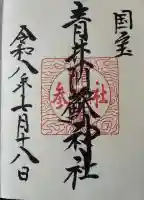 国宝
青井阿蘇神社
参社
令和八年七月十八日